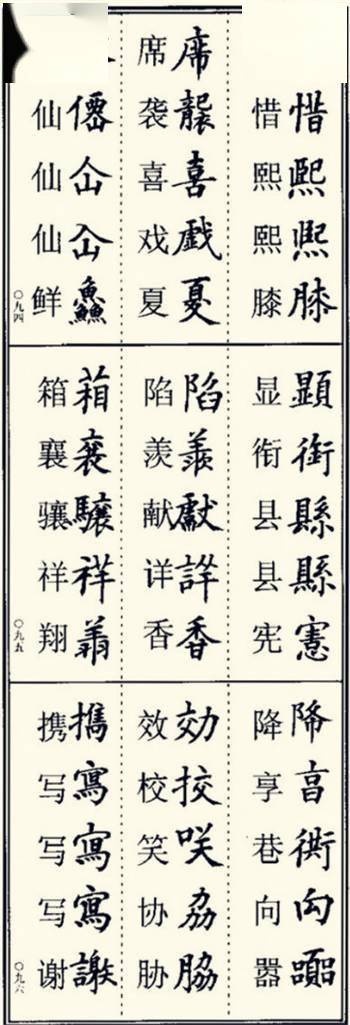 惜熙熙膝
惜熙熙膝
席襲喜戲夏
席袭喜戏夏
僊仚仚鱻
仙仙仙鲜
〇九四
顯衘縣縣憲
显衔县县宪
陷羡獻詳香
陷羡献详香
葙襄驤祥翔
箱襄骧祥翔
〇九五
降享衖向嚣
降享巷向嚣
効挍咲劦脇
效校笑协胁
擕寫寫寫謝
携写写写谢
〇九六